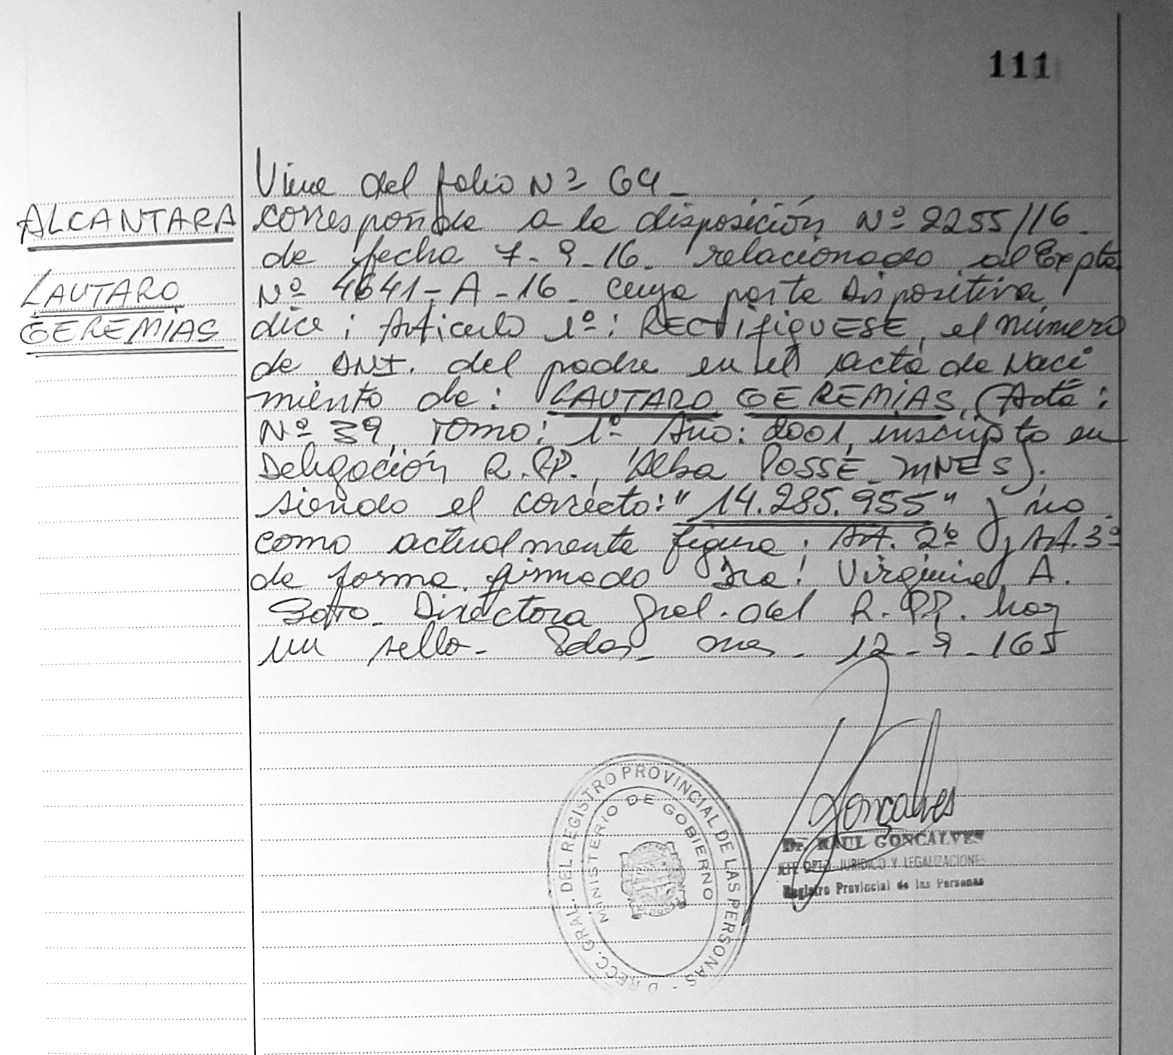 111
Viene del folio Nº 64_
ALCANTARA
LAUTARO
GEREMIAS
corresponde a la disposición Nº 2255/16_
de fecha 7-9-16_ relacionado al Expte
Nº 4641-A-16_ cuya parte dispositiva
dice: Articulo 1º: RECTIFIQUESE, el número
de DNI. del padre en el acta de Naci
miento de: LAUTARO GEREMIAS, (Acta:
Nº 39, Tomo: 1º Año: 2001, inscripto en
Delegación R.PP. Alba POSSE MNES).
siendo el correcto: "14.285.955" y no
como actualmente figura; Art. 2º y Art. 3º
de forma firmado Dra: Virginia A.
Soto_ Directora Gral. del R.PP. hay
un sello_ Pdas_ Mnes_ 12-9-16
Goncalves
Dr. RAUL GONCALVES
JEFE DPTO. JURIDICO Y LEGALIZACIONES
Registro Provincial de las Personas
DIRECC. GRAL. DEL REGISTRO PROVINCIAL DE LAS PERSONAS -
MINISTERIO DE GOBIERNO